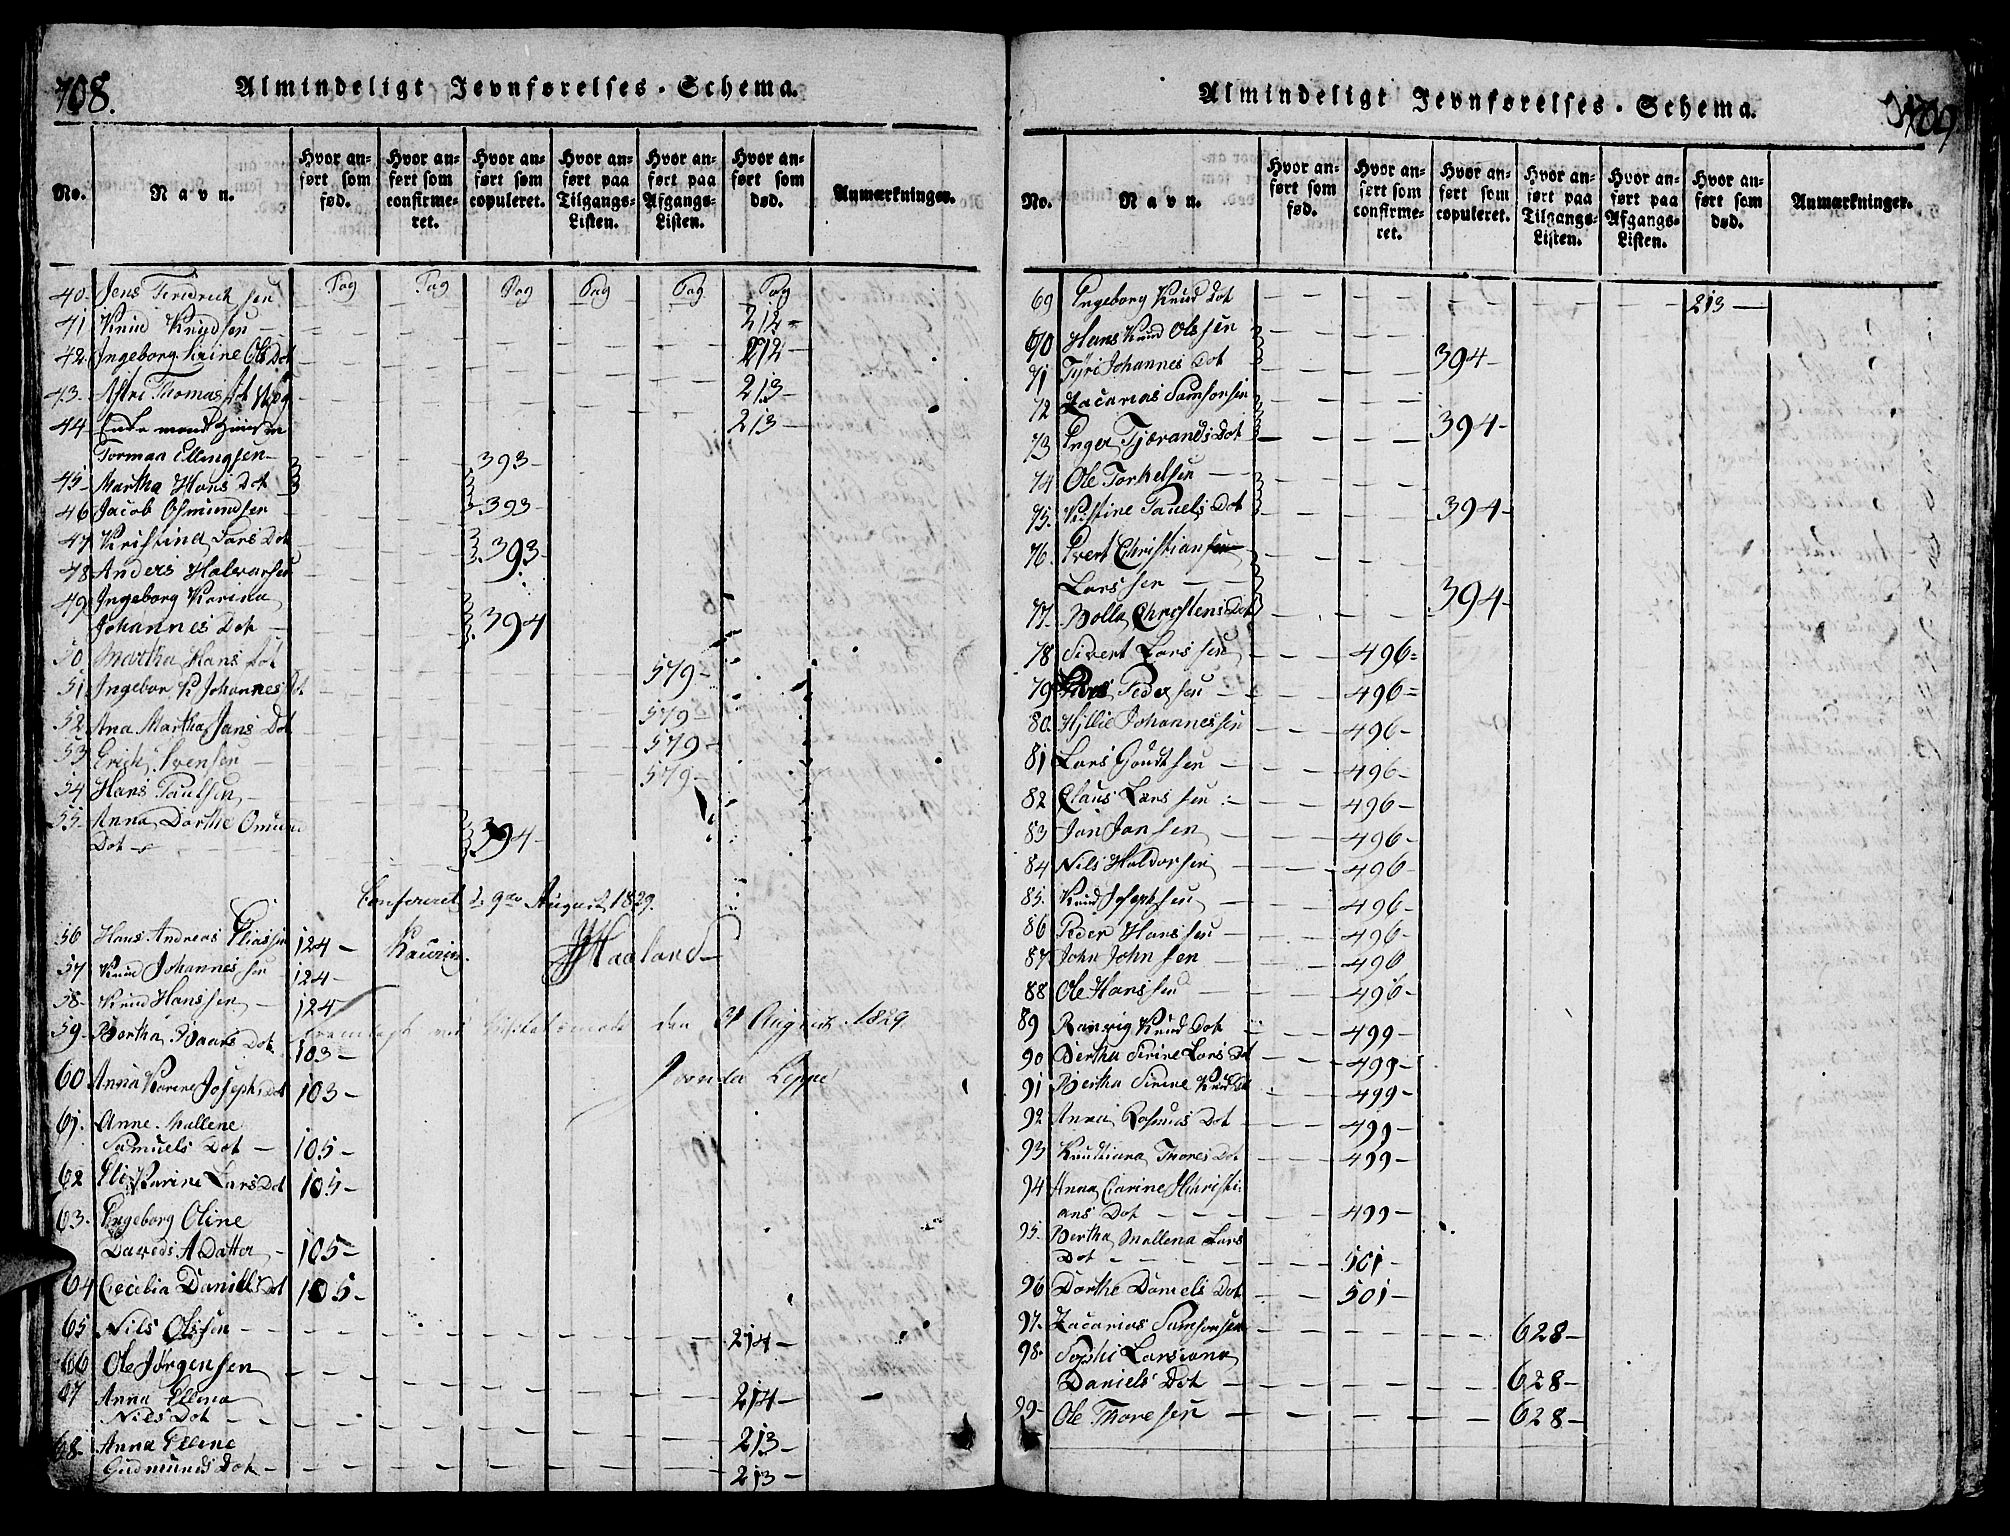 708.
Almindeligt Jevnførelses-Schema.
No.
Navn.
Hvor anført som fød.
Hvor anført som confirmeret.
Hvor anført som copuleret.
Hvor anført paa Tilgangs-Listen.
Hvor anført paa Afgangs-Listen.
Hvor anført som død.
Anmærkninger.
40 Jens Fredrich sen Pag Pag Pag Pag Pag Pag
41 Knud Knudsen 212
42 Ingeborg Sirine Ols Dot 212
43 Astri Thomas 213
44 213
Torman Ellingsen 393
45 Martha Hans Dot
46 Jacob Osmundsen 393
47 Kristina Lars Dot
48 Anders Halvorsen 393
49 Ingeborg Karina
Johannes Dot 394
50 Martha Hans Dot 579
51 Ingebor K Johannes Dot
52 Ana Martha Jans Dot 579
53 Erich Svensen 579
54 Hans Paulsen 579
55 Anna Dorthe Omund
Dot 394
Confereret d August 1829.
56 Hans Andreas Eliassen 124 Kaurin. Haaland
57 Knud Johannes sen 124
58 Knud Hanssen 124
den August 1829
59 Bertha Baars Dot 103
60 Anna Karine Josephs Dot 103
61. Anne Mallene
Samuels Dot 105
62 Eli Karine Lars Dot 105
63. Engeborg Oline
Davids A Datter 105
64 Cecilia Daniels Dot 105
65 Nils Olssen 214
66 Ole Jørgensen
67 Anna Ellena
Nils Dot 214
68. Anna Ellene 213
Gudmunds Dot 213
709
Almindeligt Jevnførelses-Schema.
No.
Navn.
Hvor anført som fød.
Hvor anført som confirmeret.
Hvor anført som copuleret.
Hvor anført paa Tilgangs-Listen.
Hvor anført paa Afgangs-Listen.
Hvor anført som død.
Anmærkninger.
69 Engeborg Knud Dot 213
70 Hans Knud Olssen
71 Tyri Johannes Dot 394
72 Zacarias Samsonsen
73 Enger Tjerands Dot 394
74 Ole Torkelsen
75. Kistine Pauels Dot 394
76. Evert Christiansen
Larssen 394
77. Bolla Christens Dot
78 Sivert Larssen 496
79 Pedersen 496
80. Hillie Johannessen 496
81 Lars Goudtsen 496
82 Claus Larssen 496
83 Jan Jansen 496
84 Nils Haldorsen 496
85. Knud Josephsen 496
86 Peder Hanssen 496
87 John Johnsen 496
88 Ole Hanssen 496
89 Ranvig Knud Dot 499
90 Bertha Sirine Lars Dot 499
91 Bertha Sirine Knud Dot 499
92 Anna Rasmus Dot 499
93 Knuthiana Thores Dot 499
94 Anna Carine Hchristi
ans Dot 499
95. Bertha Mallena Lars
Dot 501
96 Dorthe Daniels Dot 501
97. Zacarias Samsonsen 628
98. Sophi Larsiana
Daniels Dot 628
99 Ole Thoresen 628